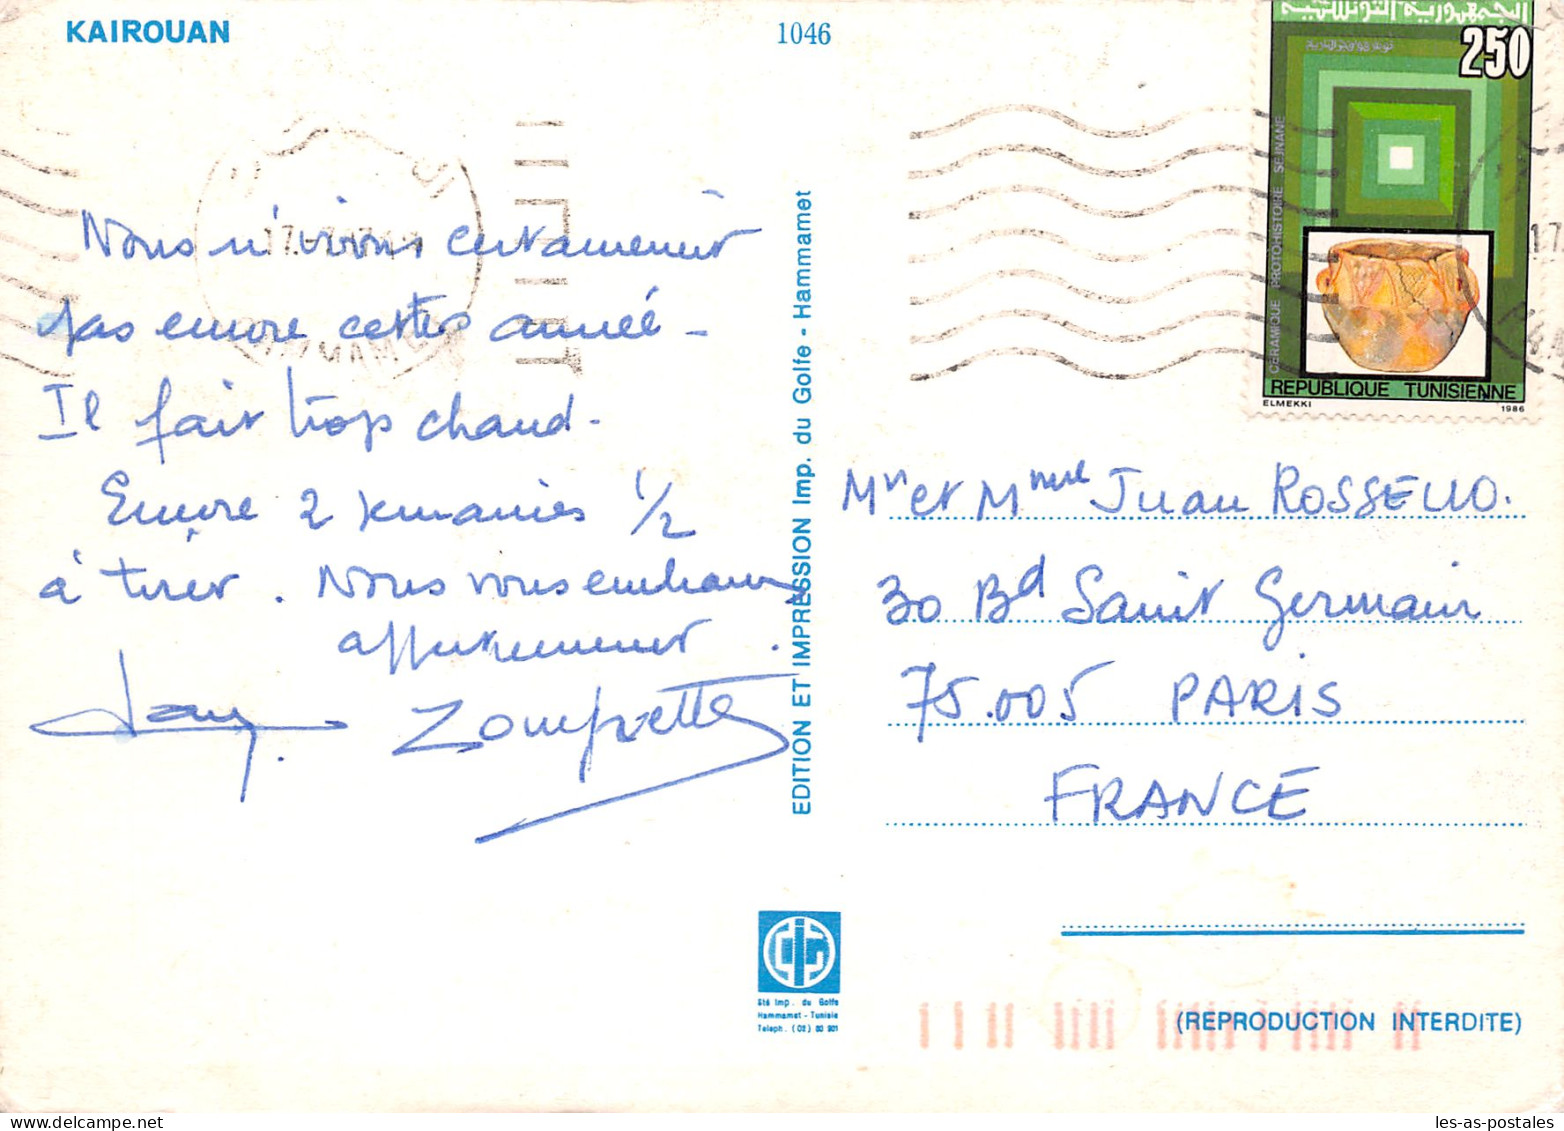 KAIROUAN
1046
Nous n'irons certainement
pas encore cette année -
Il fait trop chaud.
Encore 2 semaines 1/2
à tirer. Nous vous embrassons
affectueusement.
EDITION ET IMPRESSION Imp. du Golfe - Hammamet
الجمهورية التونسية
250
CERAMIQUE PROTOHISTOIRE SEJNANE
REPUBLIQUE TUNISIENNE
ELMEKKI 1986
Mr et Mme Juan ROSSELLO.
30 Bd Saint Germain
75.005 PARIS
FRANCE
Sté Imp. du Golfe
Hammamet - Tunisie
Teleph. (02) 80 901
(REPRODUCTION INTERDITE)
les-as-postales